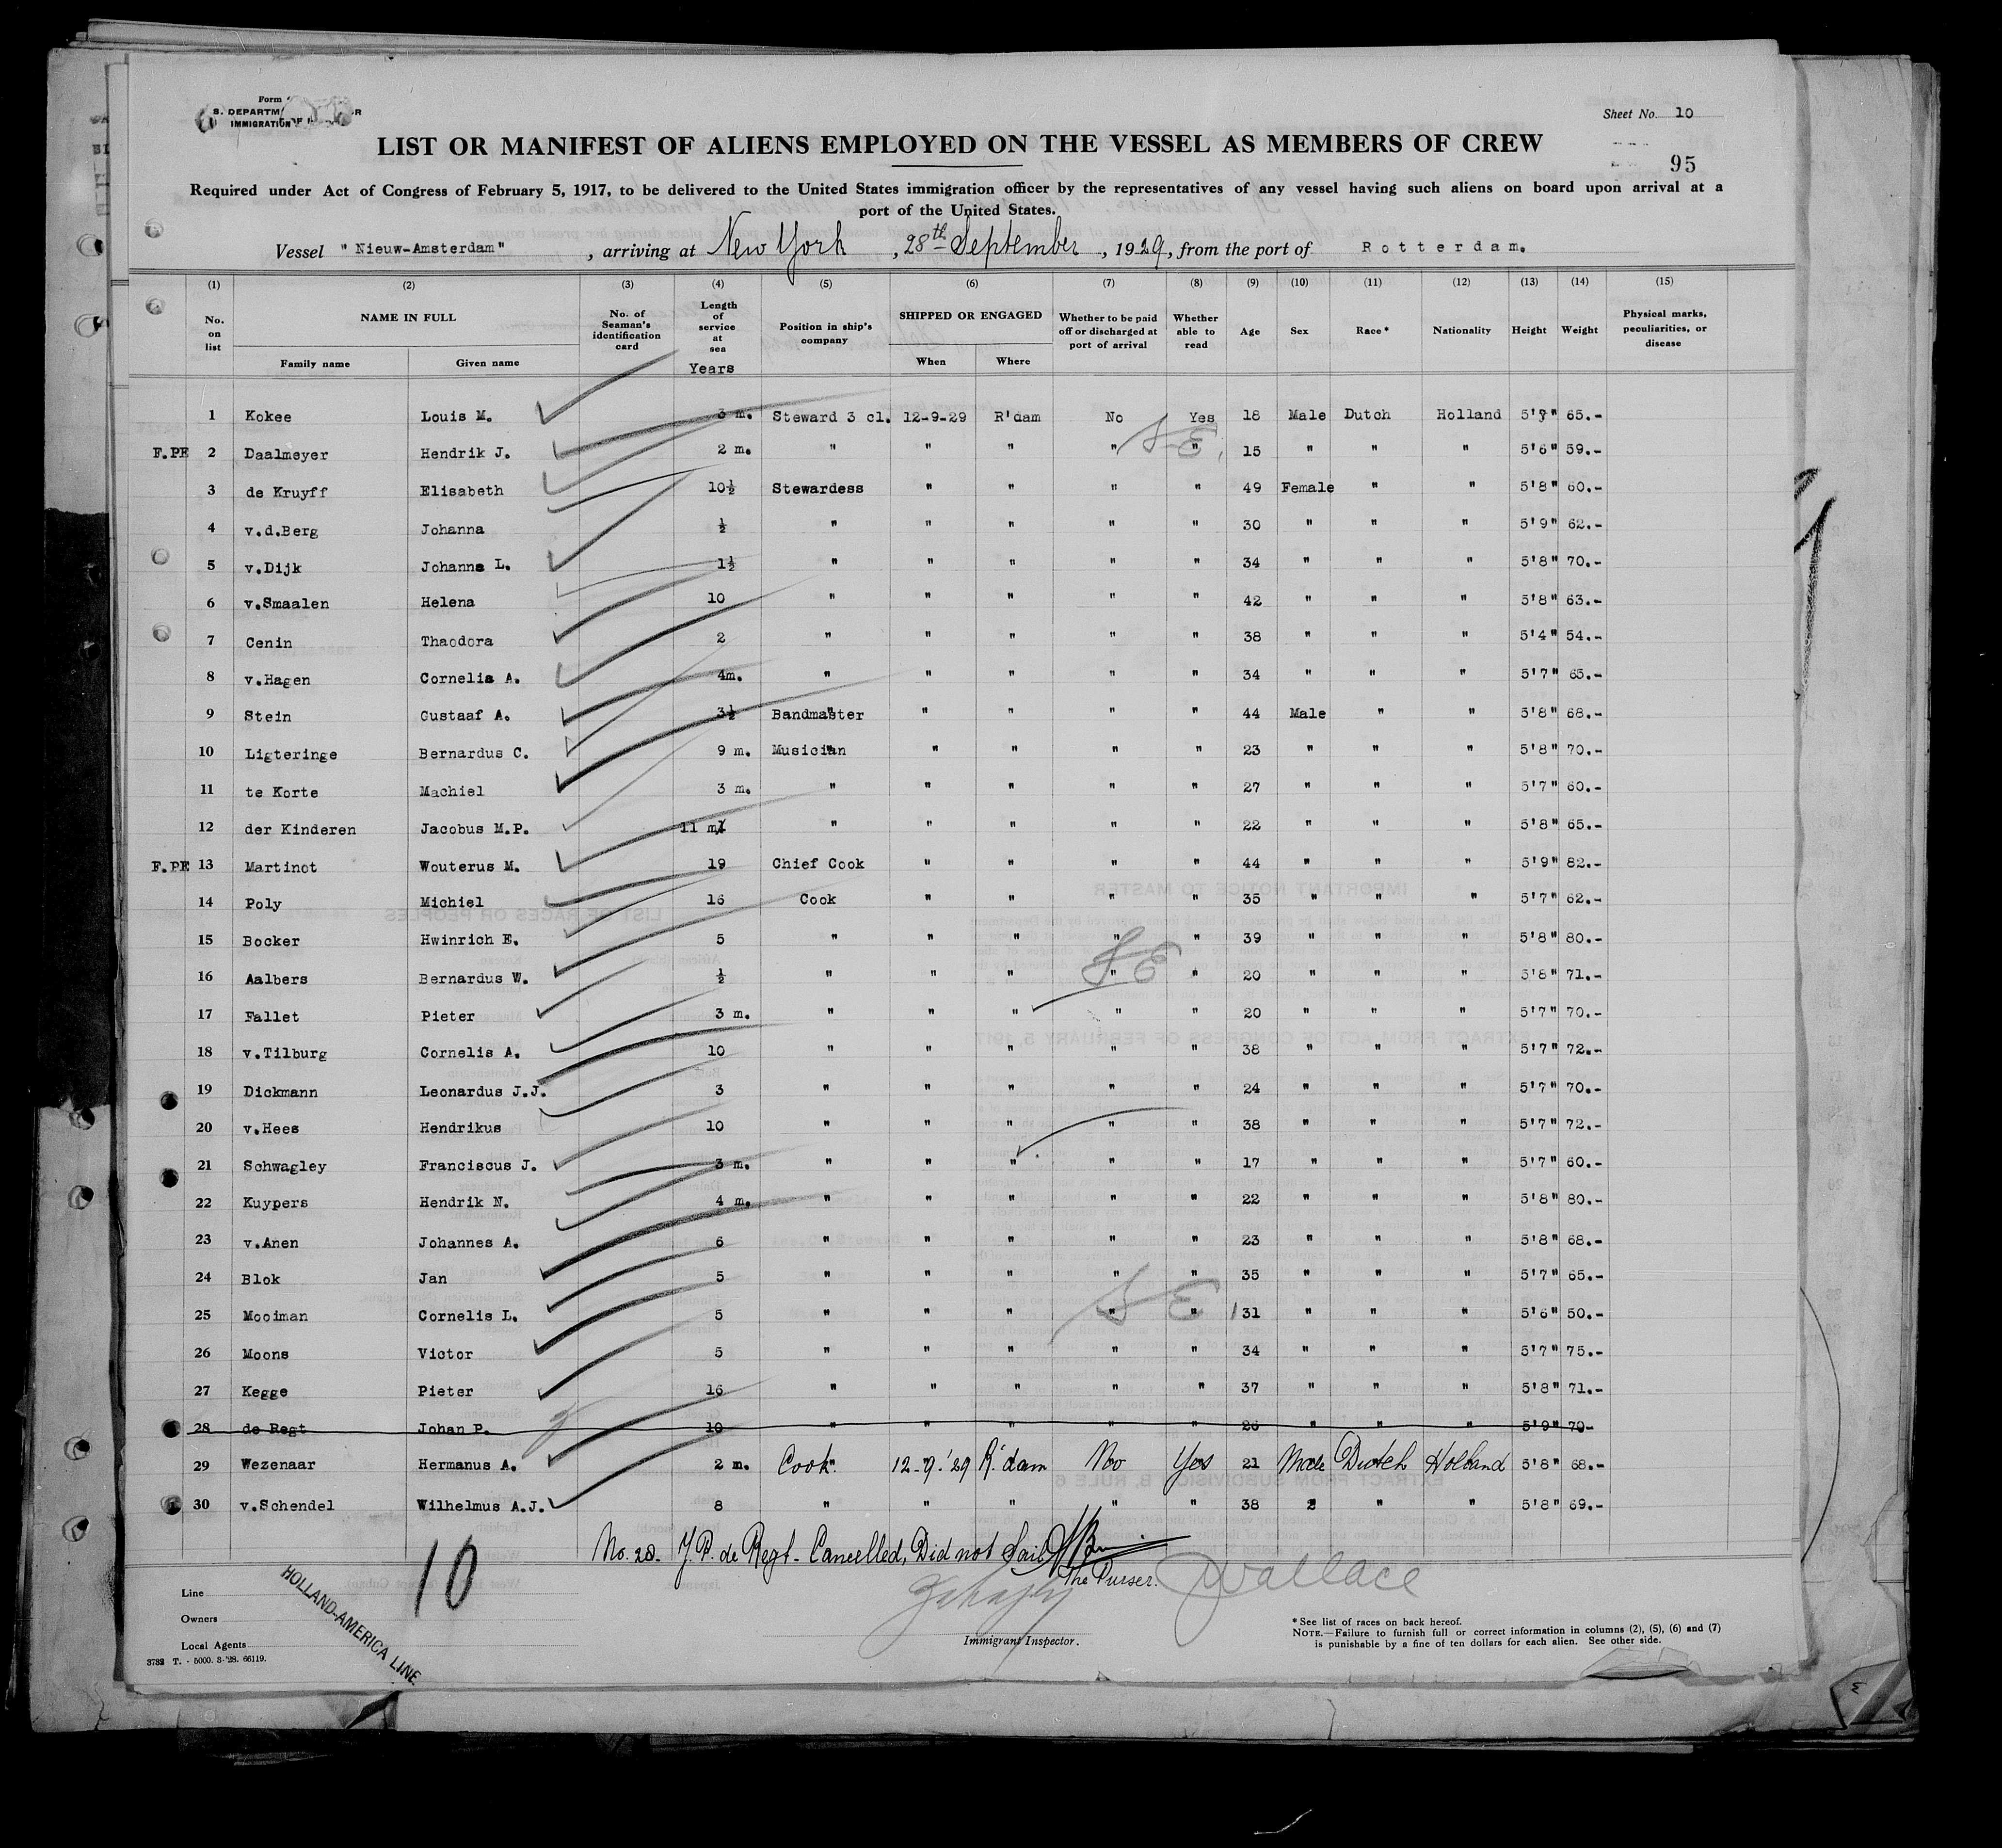 Form
S. DEPARTM
IMMIGRATION OF
Sheet No. 10
LIST OR MANIFEST OF ALIENS EMPLOYED ON THE VESSEL AS MEMBERS OF CREW
95
Required under Act of Congress of February 5, 1917, to be delivered to the United States immigration officer by the representatives of any vessel having such aliens on board upon arrival at a
port of the United States.
Vessel "Nieuw-Amsterdam", arriving at New York, 28th September, 1929, from the port of Rotterdam.
(1) (2) (3) (4) (5) (6) (7) (8) (9) (10) (11) (12) (13) (14) (15)
No. on list NAME IN FULL Family name Given name No. of Seaman's identification card Length of service at sea Years Position in ship's company SHIPPED OR ENGAGED When Where Whether to be paid off or discharged at port of arrival Whether able to read Age Sex Race* Nationality Height Weight Physical marks, peculiarities, or disease
1 Kokee Louis M. 3 m. Steward 3 cl. 12-9-29 R'dam No Yes 18 Male Dutch Holland 5'7" 65.-
F.PE 2 Daalmeyer Hendrik J. 2 m. " " " " " 15 " " " 5'6" 59.-
3 de Kruyff Elisabeth 10½ Stewardess " " " " 49 Female " " 5'8" 60.-
4 v.d.Berg Johanna ½ " " " " " 30 " " " 5'9" 62.-
5 v.Dijk Johanna L. 1½ " " " " " 34 " " " 5'8" 70.-
6 v.Smaalen Helena 10 " " " " " 42 " " " 5'8" 63.-
7 Cenin Thaodora 2 " " " " " 38 " " " 5'4" 54.-
8 v.Hagen Cornelia A. 4m. " " " " " 34 " " " 5'7" 65.-
9 Stein Gustaaf A. 3½ Bandmaster " " " " 44 Male " " 5'8" 68.-
10 Ligteringe Bernardus C. 9 m. Musician " " " " 23 " " " 5'8" 70.-
11 te Korte Machiel 3 m. " " " " " 27 " " " 5'7" 60.-
12 der Kinderen Jacobus M.P. 11 m. " " " " " 22 " " " 5'8" 65.-
F.PE 13 Martinot Wouterus M. 19 Chief Cook " " " " 44 " " " 5'9" 82.-
14 Poly Michiel 16 Cook " " " " 35 " " " 5'7" 62.-
15 Bocker Hwinrich E. 5 " " " " " 39 " " " 5'8" 80.-
16 Aalbers Bernardus W. ½ " " " " " 20 " " " 5'8" 71.-
17 Fallet Pieter 3 m. " " " " " 20 " " " 5'7" 70.-
18 v.Tilburg Cornelis A. 10 " " " " " 38 " " " 5'7" 72.-
19 Dickmann Leonardus J.J. 3 " " " " " 24 " " " 5'7" 70.-
20 v.Hees Hendrikus 10 " " " " " 38 " " " 5'7" 72.-
21 Schwagley Franciscus J. 3 m. " " " " " 17 " " " 5'7" 60.-
22 Kuypers Hendrik N. 4 m. " " " " " 22 " " " 5'8" 80.-
23 v.Anen Johannes A. 6 " " " " " 23 " " " 5'8" 68.-
24 Blok Jan 5 " " " " " 35 " " " 5'7" 65.-
25 Mooiman Cornelis L. 5 " " " " " 31 " " " 5'6" 50.-
26 Moons Victor 5 " " " " " 34 " " " 5'7" 75.-
27 Kegge Pieter 16 " " " " " 37 " " " 5'8" 71.-
28 de Regt Johan P. 10 " " " " " 26 " " " 5'9" 70-
29 Wezenaar Hermanus A. 2 m. Cook 12-9-'29 R'dam No Yes 21 Male Dutch Holland 5'8" 68.-
30 v.Schendel Wilhelmus A.J. 8 " " " " " 38 " " 5'8" 69.-
No. 28. J.P. de Regt - Cancelled, Did not Sail
The Purser.
10
Wallace
Line
Owners
Local Agents
HOLLAND-AMERICA LINE
Immigrant Inspector.
*See list of races on back hereof.
NOTE.—Failure to furnish full or correct information in columns (2), (5), (6) and (7)
is punishable by a fine of ten dollars for each alien. See other side.
3732 T. - 5000. 3-'28. 66119.